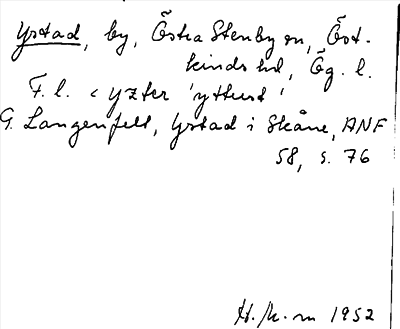 Ystad, by, Östra Stenby sn, Öst-
kinds hd, Ög. l.
F. l. < yzter 'ytterst'
G. Langenfelt, Ystad i Skåne, ANF
58, s. 76
H. /k. m 1952